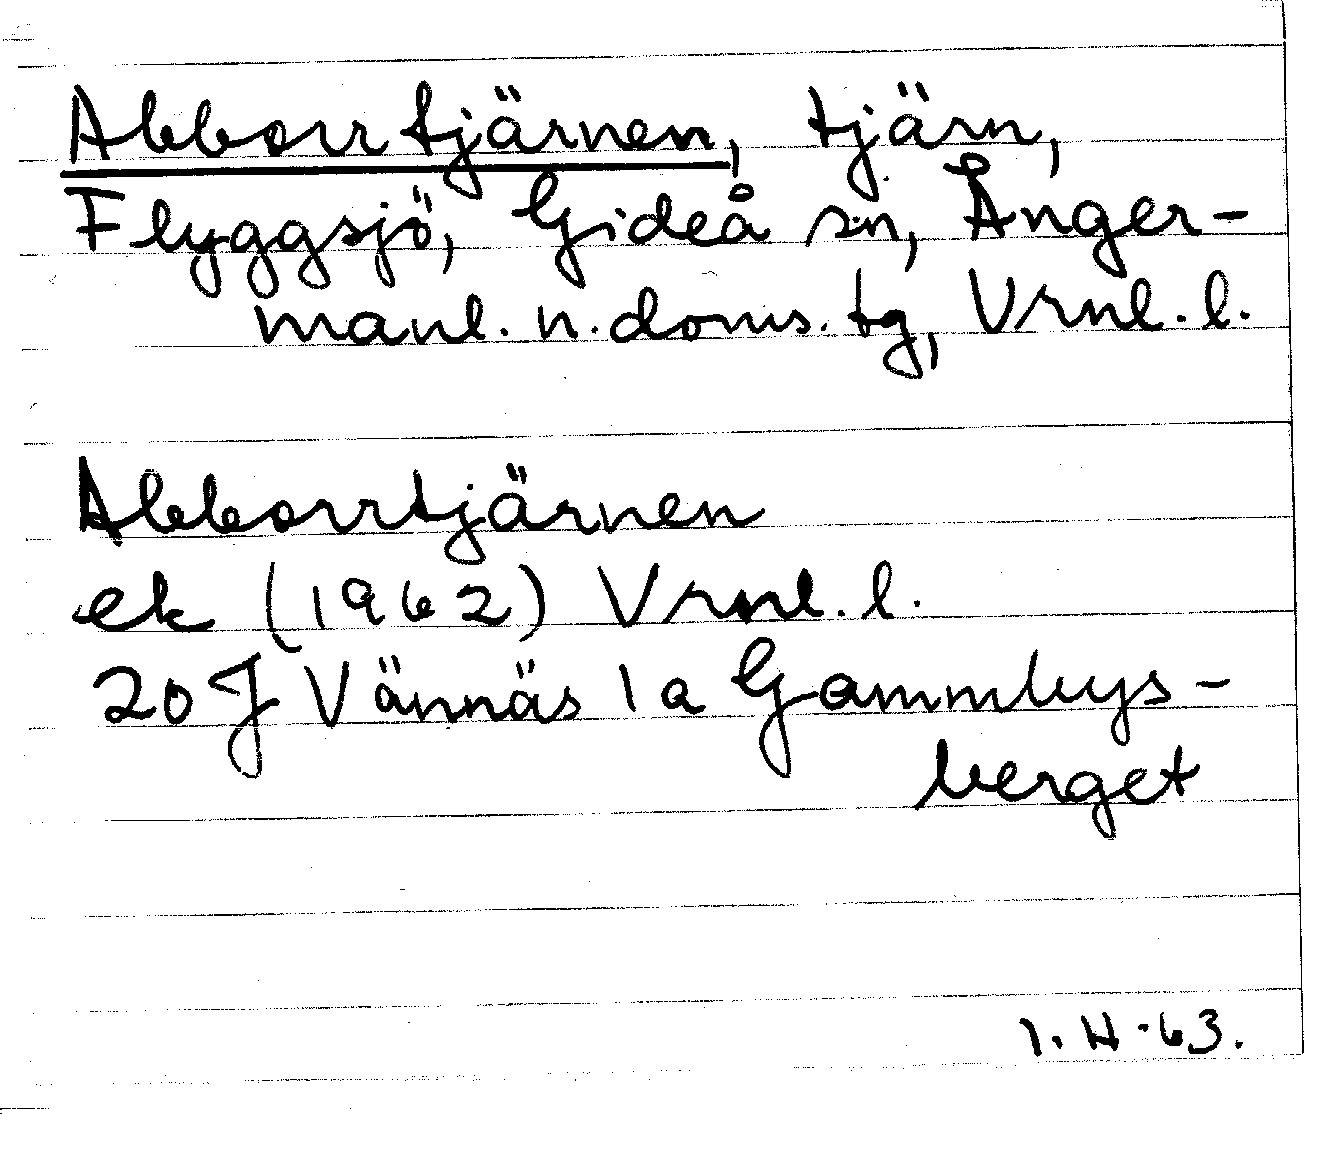 Abborrtjärnen, tjärn,
Flyggsjö, Gideå sn, Ånger-
manl. n. doms. tg, Vrnl. l.
Abborrtjärnen
ek (1962) Vrnl. l.
20 J Vännäs 1 a Gammbys-
berget
I. H -63.